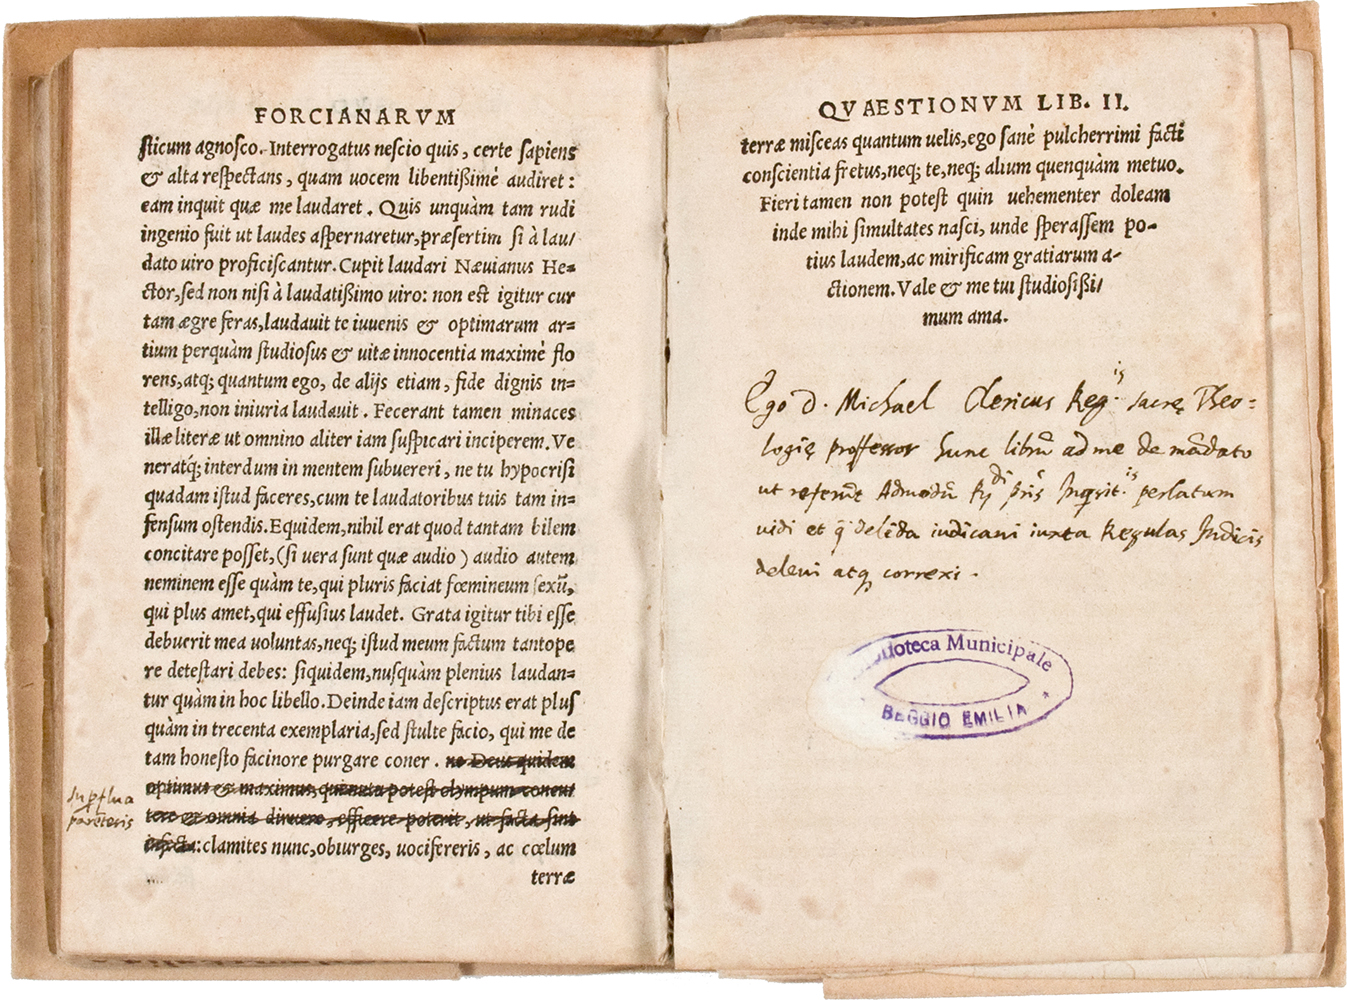 FORCIANARVM
sticum agnosco. Interrogatus nescio quis, certe sapiens
& alta respectans, quam uocem libentißimè audiret:
eam inquit quæ me laudaret. Quis unquàm tam rudi
ingenio fuit ut laudes aspernaretur, præsertim si à lau/
dato uiro proficiscantur. Cupit laudari Næuianus He=
ctor, sed non nisi à laudatißimo uiro: non est igitur cur
tam ægre feras, laudauit te iuuenis & optimarum ar=
tium perquàm studiosus & uitæ innocentia maximè flo
rens, atq; quantum ego, de alijs etiam, fide dignis in=
telligo, non iniuria laudauit. Fecerant tamen minaces
illæ literæ ut omnino aliter iam suspicari inciperem. Ve
neratq́; interdum in mentem subuereri, ne tu hypocrisi
quadam istud faceres, cum te laudatoribus tuis tam in=
fensum ostendis. Equidem, nihil erat quod tantam bilem
concitare posset, (si uera sunt quæ audio) audio autem
neminem esse quàm te, qui pluris faciat fœmineum sexũ,
qui plus amet, qui effusius laudet. Grata igitur tibi esse
debuerit mea uoluntas, neq; istud meum factum tantope
re detestari debes: siquidem, nusquàm plenius laudan=
tur quàm in hoc libello. Deinde iam descriptus erat plus
quàm in trecenta exemplaria, sed stulte facio, qui me de
tam honesto facinore purgare coner. ne Deus quidem
optimus & maximus, qui nutu potest olympum concu/
tere et omnia diruere, efficere poterit, ut facta sint
infecta: clamites nunc, obiurges, uocifereris, ac cœlum
terræ
QVAESTIONVM LIB. II.
terræ misceas quantum uelis, ego sanè pulcherrimi facti
conscientia fretus, neq; te, neq; alium quenquàm metuo.
Fieri tamen non potest quin uehementer doleam
inde mihi simultates nasci, unde sperassem po=
tius laudem, ac mirificam gratiarum a-
ctionem. Vale & me tui studiosißi/
mum ama.
Ego D. Michael Clericus Reg.is sacrę Theo=
logię professor hunc librũ ad me de mãdato
ut referũt Admodũ Rdi pris Inqsit.is perlatum
uidi et q̃ delẽda iudicaui iuxta Regulas Indicis
deleui atq correxi.
Biblioteca Municipale
REGGIO EMILIA *